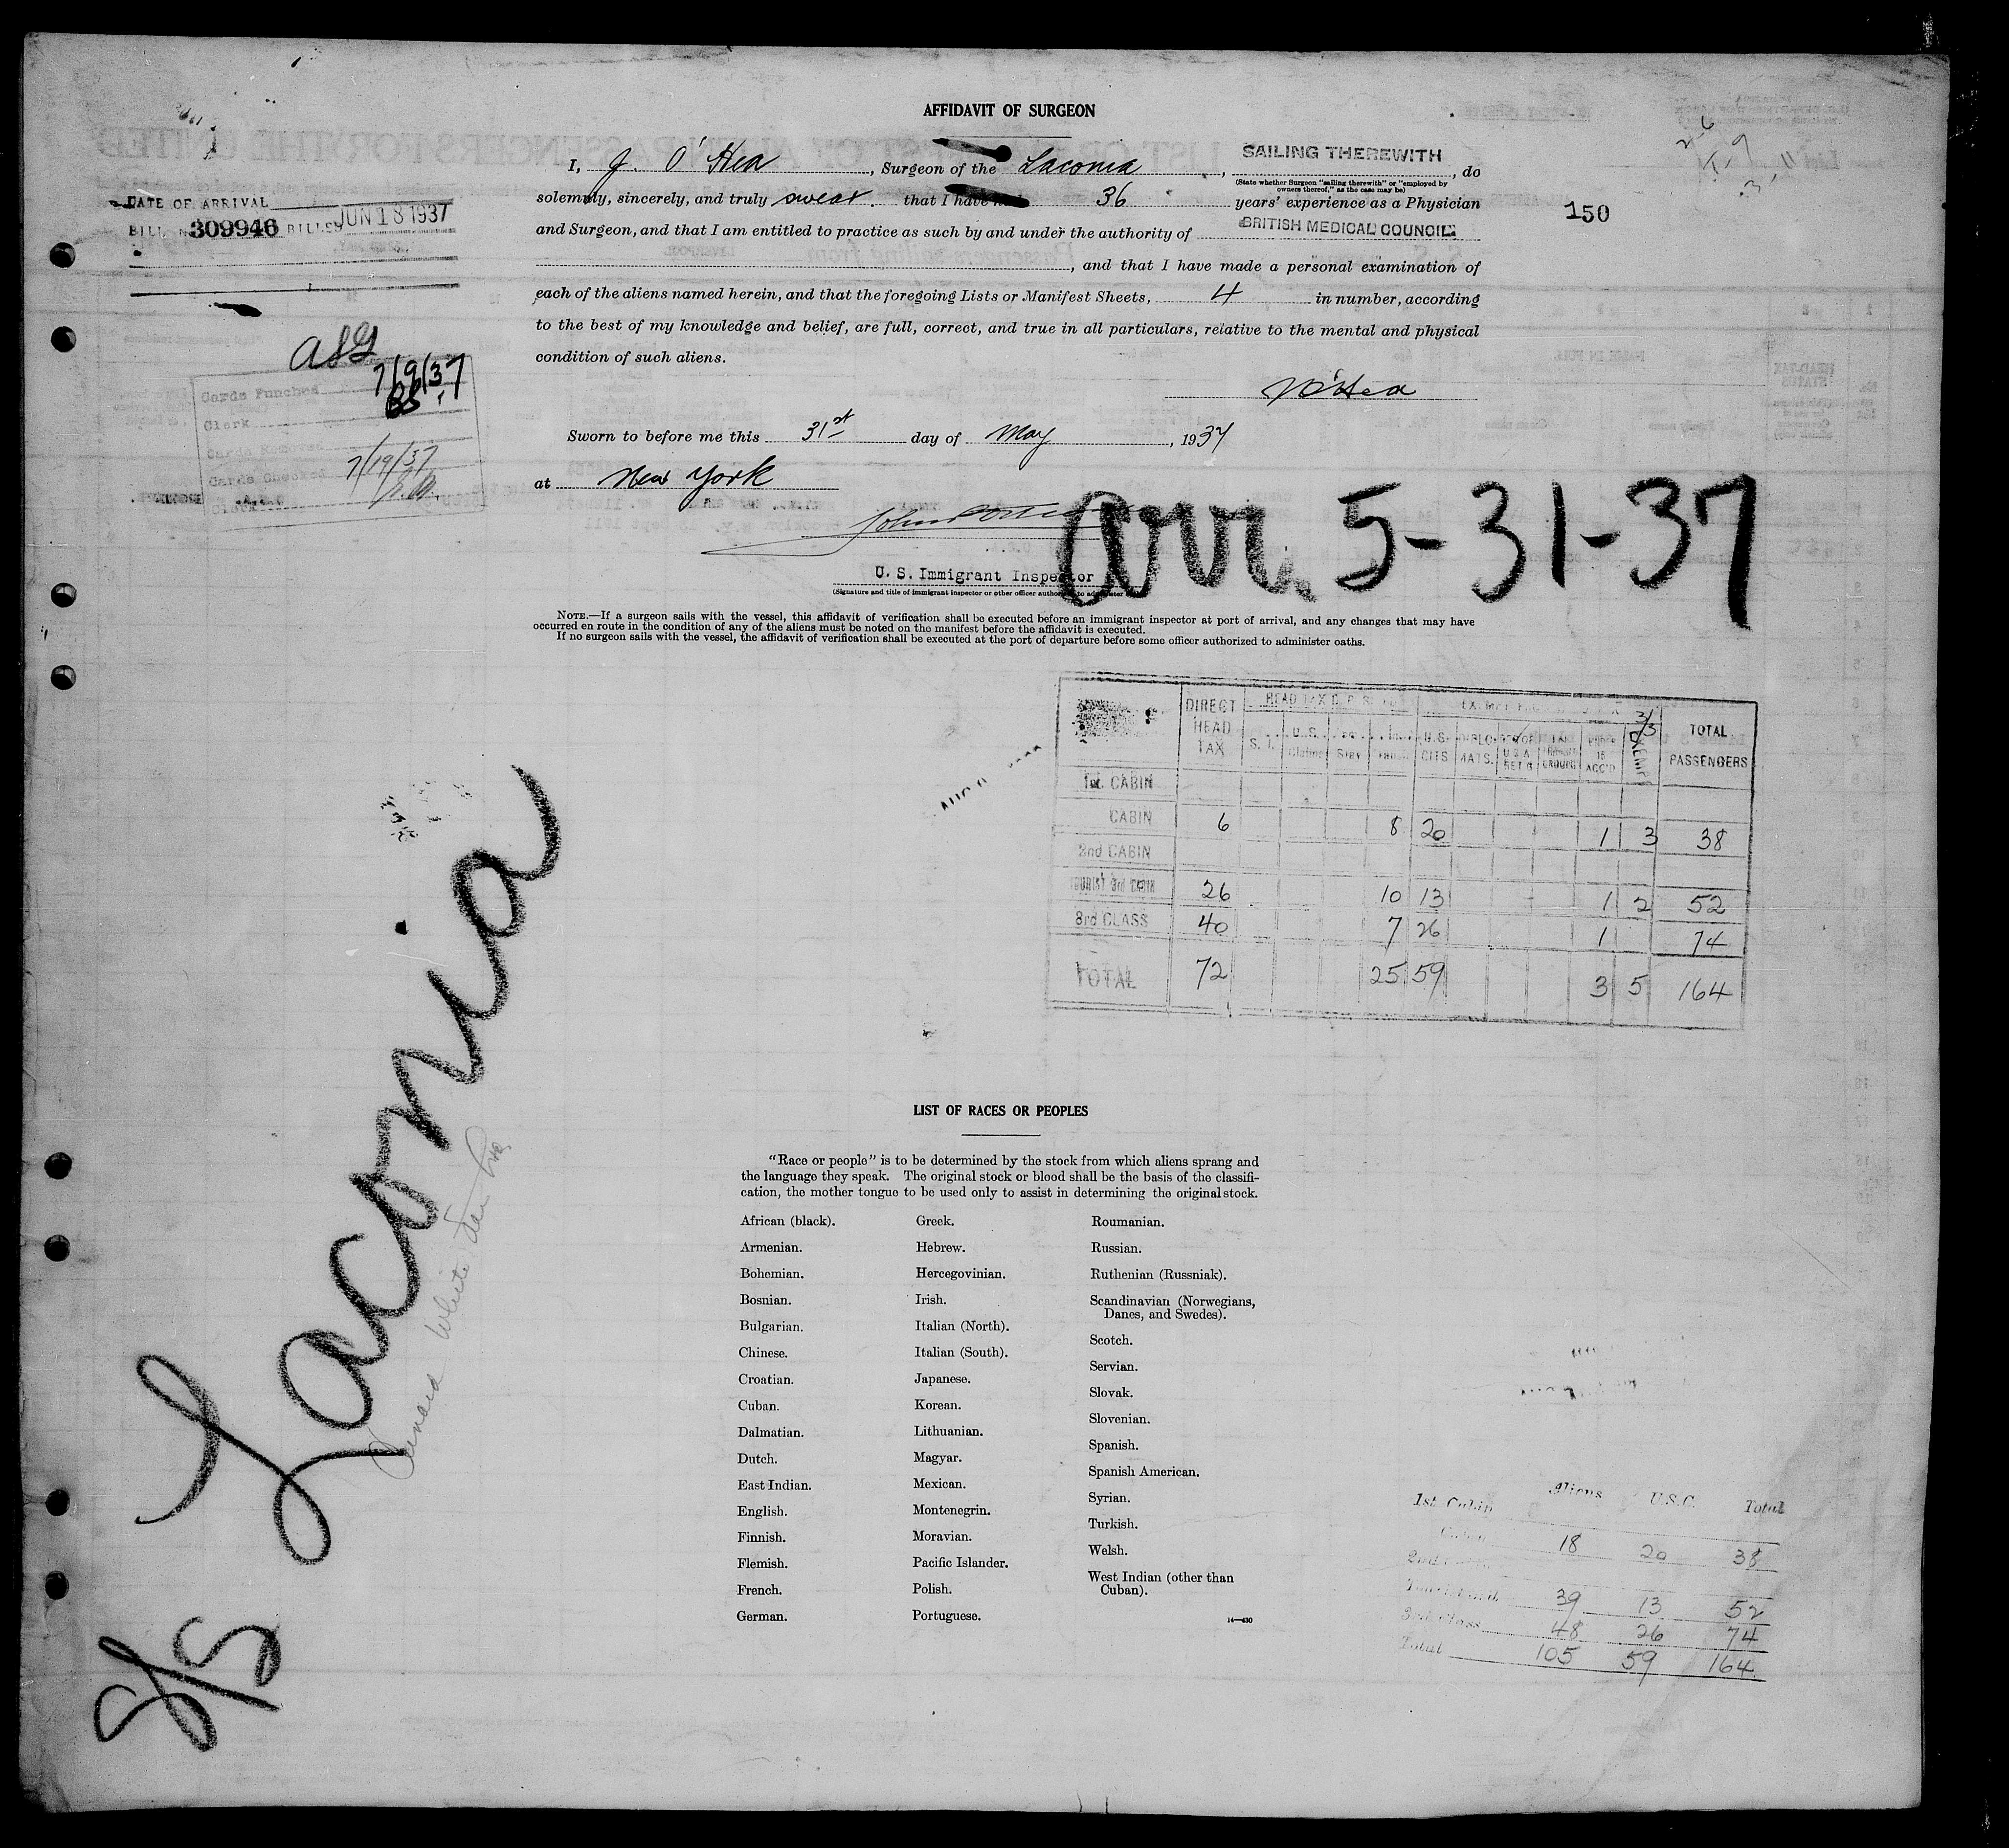 AFFIDAVIT OF SURGEON
I, J. O'Hea, Surgeon of the Laconia, SAILING THEREWITH, do
(State whether Surgeon "sailing therewith" or "employed by owners thereof," as the case may be)
solemnly, sincerely, and truly swear that I have 36 years' experience as a Physician
and Surgeon, and that I am entitled to practice as such by and under the authority of BRITISH MEDICAL COUNCIL
, and that I have made a personal examination of
each of the aliens named herein, and that the foregoing Lists or Manifest Sheets, 4 in number, according
to the best of my knowledge and belief, are full, correct, and true in all particulars, relative to the mental and physical
condition of such aliens.
O'Hea
Sworn to before me this 31st day of May, 1937
at New York
U. S. Immigrant Inspector
(Signature and title of immigrant inspector or other officer authorized to administer
DATE OF ARRIVAL
BILL 309946 BILLED JUN 18 1937
150
Cards Punched 7/9/37
Clerk BS
Cards Checked 7/19/37
Clerk
Arr. 5-31-37
NOTE.—If a surgeon sails with the vessel, this affidavit of verification shall be executed before an immigrant inspector at port of arrival, and any changes that may have
occurred en route in the condition of any of the aliens must be noted on the manifest before the affidavit is executed.
If no surgeon sails with the vessel, the affidavit of verification shall be executed at the port of departure before some officer authorized to administer oaths.
DIRECT HEAD TAX U.S. CITS EXEMPT TOTAL PASSENGERS
1st CABIN
CABIN 6 8 20 1 3 38
2nd CABIN
TOURIST 3rd CABIN 26 10 13 1 2 52
3rd CLASS 40 7 26 1 74
TOTAL 72 25 59 3 5 164
S/S Laconia
Cunard White Star Line
LIST OF RACES OR PEOPLES
"Race or people" is to be determined by the stock from which aliens sprang and
the language they speak. The original stock or blood shall be the basis of the classifi-
cation, the mother tongue to be used only to assist in determining the original stock.
African (black).
Armenian.
Bohemian.
Bosnian.
Bulgarian.
Chinese.
Croatian.
Cuban.
Dalmatian.
Dutch.
East Indian.
English.
Finnish.
Flemish.
French.
German.
Greek.
Hebrew.
Hercegovinian.
Irish.
Italian (North).
Italian (South).
Japanese.
Korean.
Lithuanian.
Magyar.
Mexican.
Montenegrin.
Moravian.
Pacific Islander.
Polish.
Portuguese.
Roumanian.
Russian.
Ruthenian (Russniak).
Scandinavian (Norwegians,
Danes, and Swedes).
Scotch.
Servian.
Slovak.
Slovenian.
Spanish.
Spanish American.
Syrian.
Turkish.
Welsh.
West Indian (other than
Cuban).
14—430
Aliens U.S.C. Total
1st Cabin
Cabin 18 20 38
2nd
39 13 52
3rd Class 48 26 74
Total 105 59 164